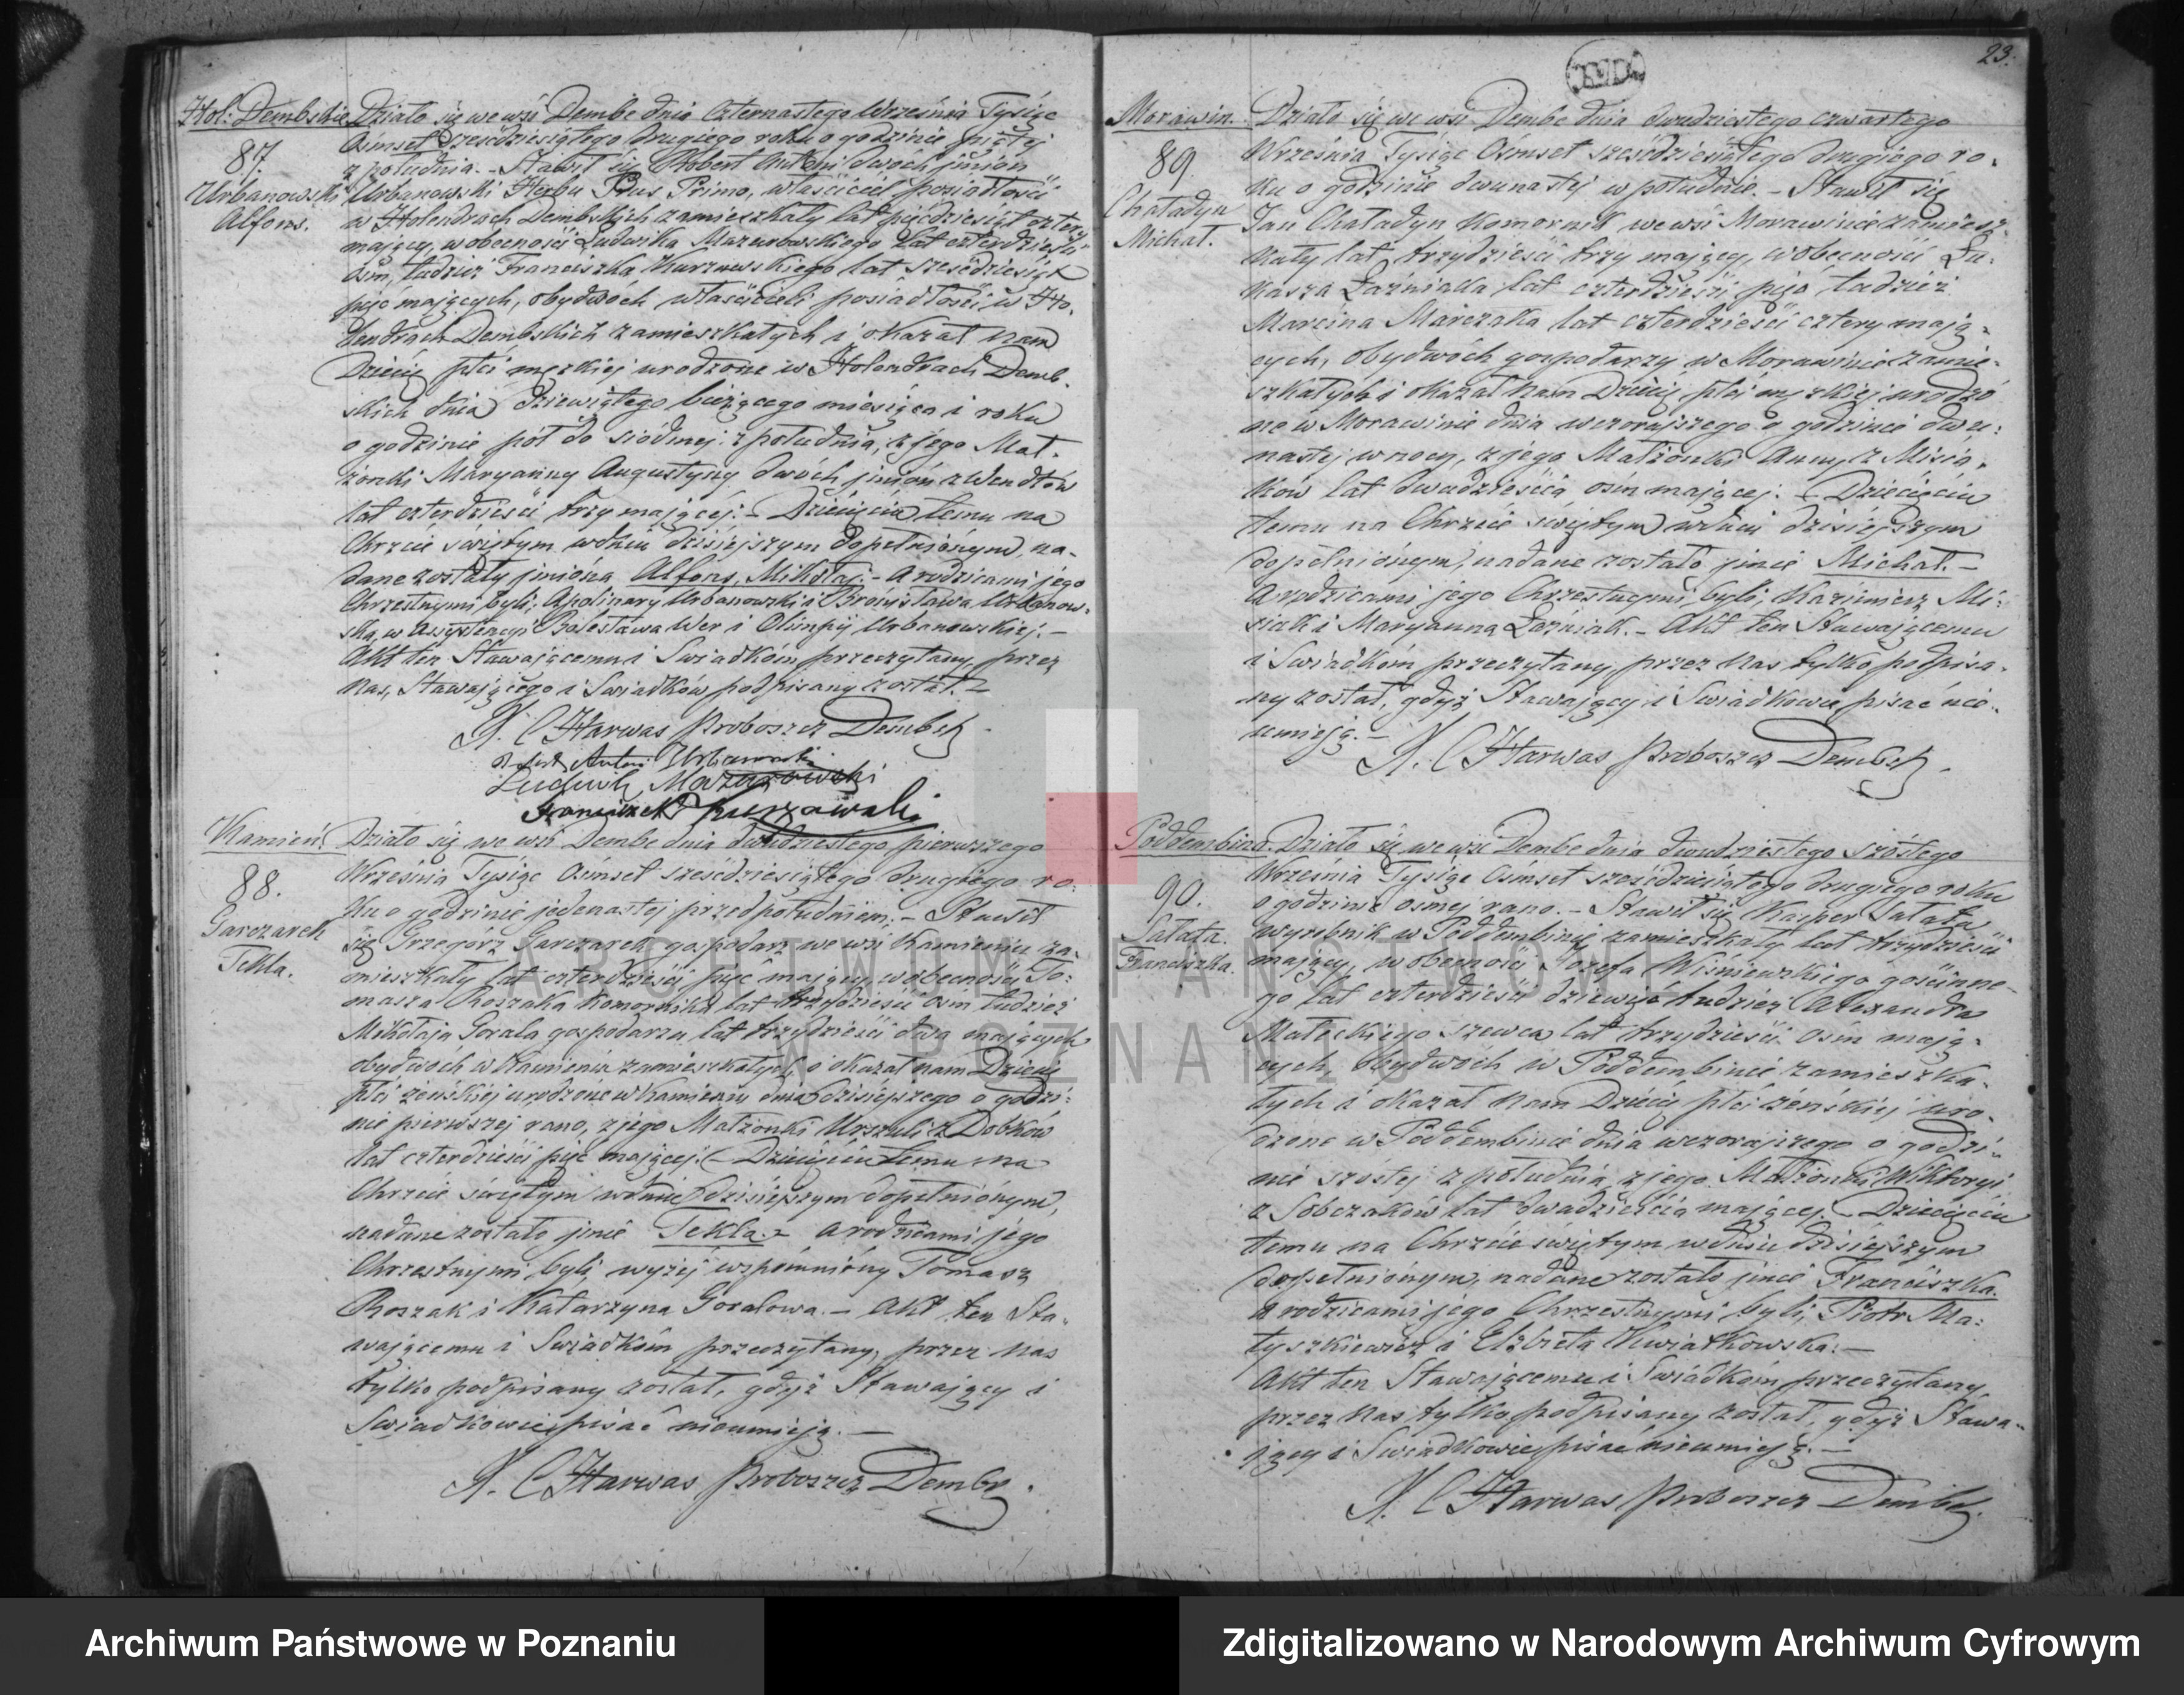 23.
Hol: Dembskie
87.
Urbanowski
Alfons.
Działo się we wsi Dembe dnia Czternastego Września Tysiąc
Ośmset sześćdziesiątego drugiego roku o godzinie piątej
z południa. – Stawił się Robert Antoni dwóch imión
Urbanowski Herbu Prus Primo, właściciel posiadłości
w Holendrach Dembskich zamieszkały lat pięćdziesiąt cztery
mający, w obecności Ludwika Mazurowskiego lat czterdzieści
ośm, tudzież Franciszka Kurzawskiego lat sześćdziesiąt
pięć mających, obydwóch właścicieli posiadłości w Ho-
lendrach Dembskich zamieszkałych i okazał nam
Dziécię płci męzkiej urodzone w Holendrach Demb-
skich dnia dziewiątego bieżącego miesiąca i roku
o godzinie pół do siódmej z południa, z jego Mał-
żonki Maryanny Augustyny dwóch jmión z Wendtów
lat czterdzieści trzy mającéj. – Dziécięciu temu na
Chrzcie świętym w dniu dzisiejszym dopełnionym, na-
dane zostały jmióna Alfons, Mikołaj. – A rodzicami jégo
Chrzestnymi byli; Apolinary Urbanowski i Bronisława Urbanow-
ska, w Assystencyi Bolesława Wer i Olimpij Urbanowskiej. –
Akt ten Stawającemu i Swiadkóm przeczytany, przez
Nas, Stawającego i Swiadków podpisany został. –
X. C Harwas Proboszcz Dembsk
Robert Antoni Urbanowski
Ludwik Mazurowski
Franciszek Kurzawski
Kamień.
88.
Garczarek
Tekla.
Działo się we wsi Dembe dnia dwudziestego pierwszego
Września Tysiąc Ośmset sześćdziesiątego drugiego ro-
ku o godzinie jedenastej przed południem. – Stawił
się Grzegórz Garczarek gospodarz we wsi Kamieniu za-
mieszkały lat czterdzieści pięć mający, w obecności To-
masza Roszaka komornika lat trzydzieści ośm tudzież
Mikołaja Gorala gospodarza lat trzydzieści dwa mających
obydwóch w Kamieniu zamieszkałych, i okazał nam Dziécię
płci żeńskiéj urodzone w Kamieniu dnia dzisiejszego o godzi-
nie pierwszej rano, z jego Małżonki Urszuli z Dobków
lat czterdzieści pięć mającej. – Dziécięciu temu na
Chrzcie świętym w dniu dzisiejszym dopełnionym,
nadane zostało jmie Tekla. – A rodzicami jégo
Chrzestnymi byli, wyżéj wspomnióny Tomasz
Roszak i Katarzyna Goralowa. – Akt ten Sta-
wającemu i Swiadkóm przeczytany, przez nas
tylko podpisany został, gdyż Stawający i
Swiadkowie pisać nieumieją. –
X. C Harwas Proboszcz Dembs
Morawin.
89.
Chaładyn
Michał.
Działo się we wsi Dembe dnia dwudziestego czwartego
Września Tysiąc Ośmset sześćdziesiątego drugiego ro-
ku o godzinie dwunastej w południe. – Stawił się
Jan Chaładyn Komornik we wsi Morawinie zamiesz-
kały lat trzydzieści trzy mający, w obecności Łu-
kasza Łaźniaka lat czterdzieści pięć tudzież
Marcina Marczaka lat czterdzieści cztery mają-
cych, obydwóch gospodarzy w Morawinie zamie-
szkałych i okazał nam Dziécię płci męzkiej urodzo-
ne w Morawinie dnia wczorajszego o godzinie dwu-
nastej w nocy, z jego Małżonki Anny z Misia-
ków lat dwadzieścia ośm mającej. – Dziécięciu
temu na Chrzcie świętym w dniu dzisiéjszym
dopełnionym, nadane zostało jmie Michał. –
A rodzicami jégo Chrzestnymi byli; Kazimierz Mi-
siak i Maryanna Łaźniak. – Akt ten Stawającemu
i Swiadkóm przeczytany, przez Nas tylko podpisa-
ny został, gdyż Stawający i Swiadkowie pisać nie-
umieją. –
X. C Harwas Proboszcz Dembsk
Poddembina.
90.
Sałata
Franciszka.
Działo się we wsi Dembe dnia dwudziestego szóstego
Września Tysiąc Ośmset sześćdziesiątego drugiego roku
o godzinie ósmej rano. – Stawił się Kasper Sałata
wyrobnik w Poddembinie zamieszkały lat trzydzieści
mający, w obecności Józefa Wiśniewskiego gościnne-
go lat czterdzieści dziewięć tudzież Alexandra
Małeckiego szewca lat trzydzieści ośm mają-
cych, obydwóch w Poddembinie zamieszka-
łych i okazał nam Dziécię płci żeńskiej uro-
dzone w Poddembinie dnia wczorajszego o godzi-
nie szóstej z południa, z jego Małżonki Wiktoryi
z Sobczaków lat dwadzieścia mającej. Dziécięciu
temu na Chrzcie świętym w dniu dzisiéjszym
dopełnionym, nadane zostało jmie Franciszka.
A rodzicami jégo Chrzestnymi byli, Piotr Ma-
tyszkiewicz i Elżbieta Kwiatkowska. –
Akt ten Stawającemu i Swiadkóm przeczytany,
przez Nas tylko podpisany został, gdyż Stawa-
jący i Swiadkowie pisać nieumieją. –
X. C Harwas Proboszcz Dembsk
ARCHIWUM PAŃSTWOWE
W POZNANIU
Archiwum Państwowe w Poznaniu
Zdigitalizowano w Narodowym Archiwum Cyfrowym